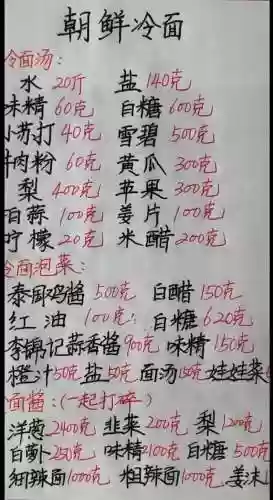 朝鲜冷面
冷面汤:
水 20斤 盐 140克
味精 60克 白糖 600克
小苏打 40克 雪碧 500克
牛肉粉 60克 黄瓜 300克
梨 400克 苹果 300克
白蒜 100克 姜片 100克
柠檬 20克 米醋 200克
冷面泡菜:
泰国鸡酱 500克 白醋 150克
红油 100克 白糖 620克
李锦记蒜香酱 900克 味精 150克
橙汁50克 盐50克 面汤150克 娃娃菜
面酱:(一起打碎)
洋葱2400克 韭菜200克 梨1200克
白卦250克 味精2100克 白糖500克
细辣面1000克 粗辣面1000克 姜沫